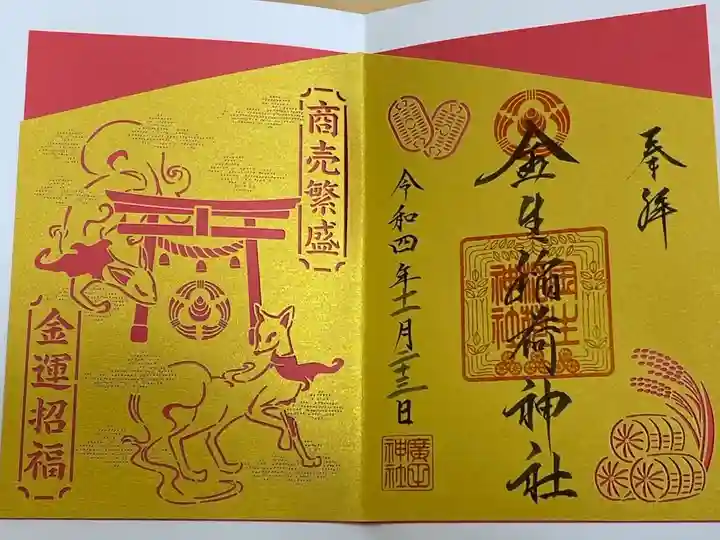 奉拝
金生稲荷神社
金生稲荷神社
令和四年十一月二十三日
廣田神社
商売繁盛
金運招福